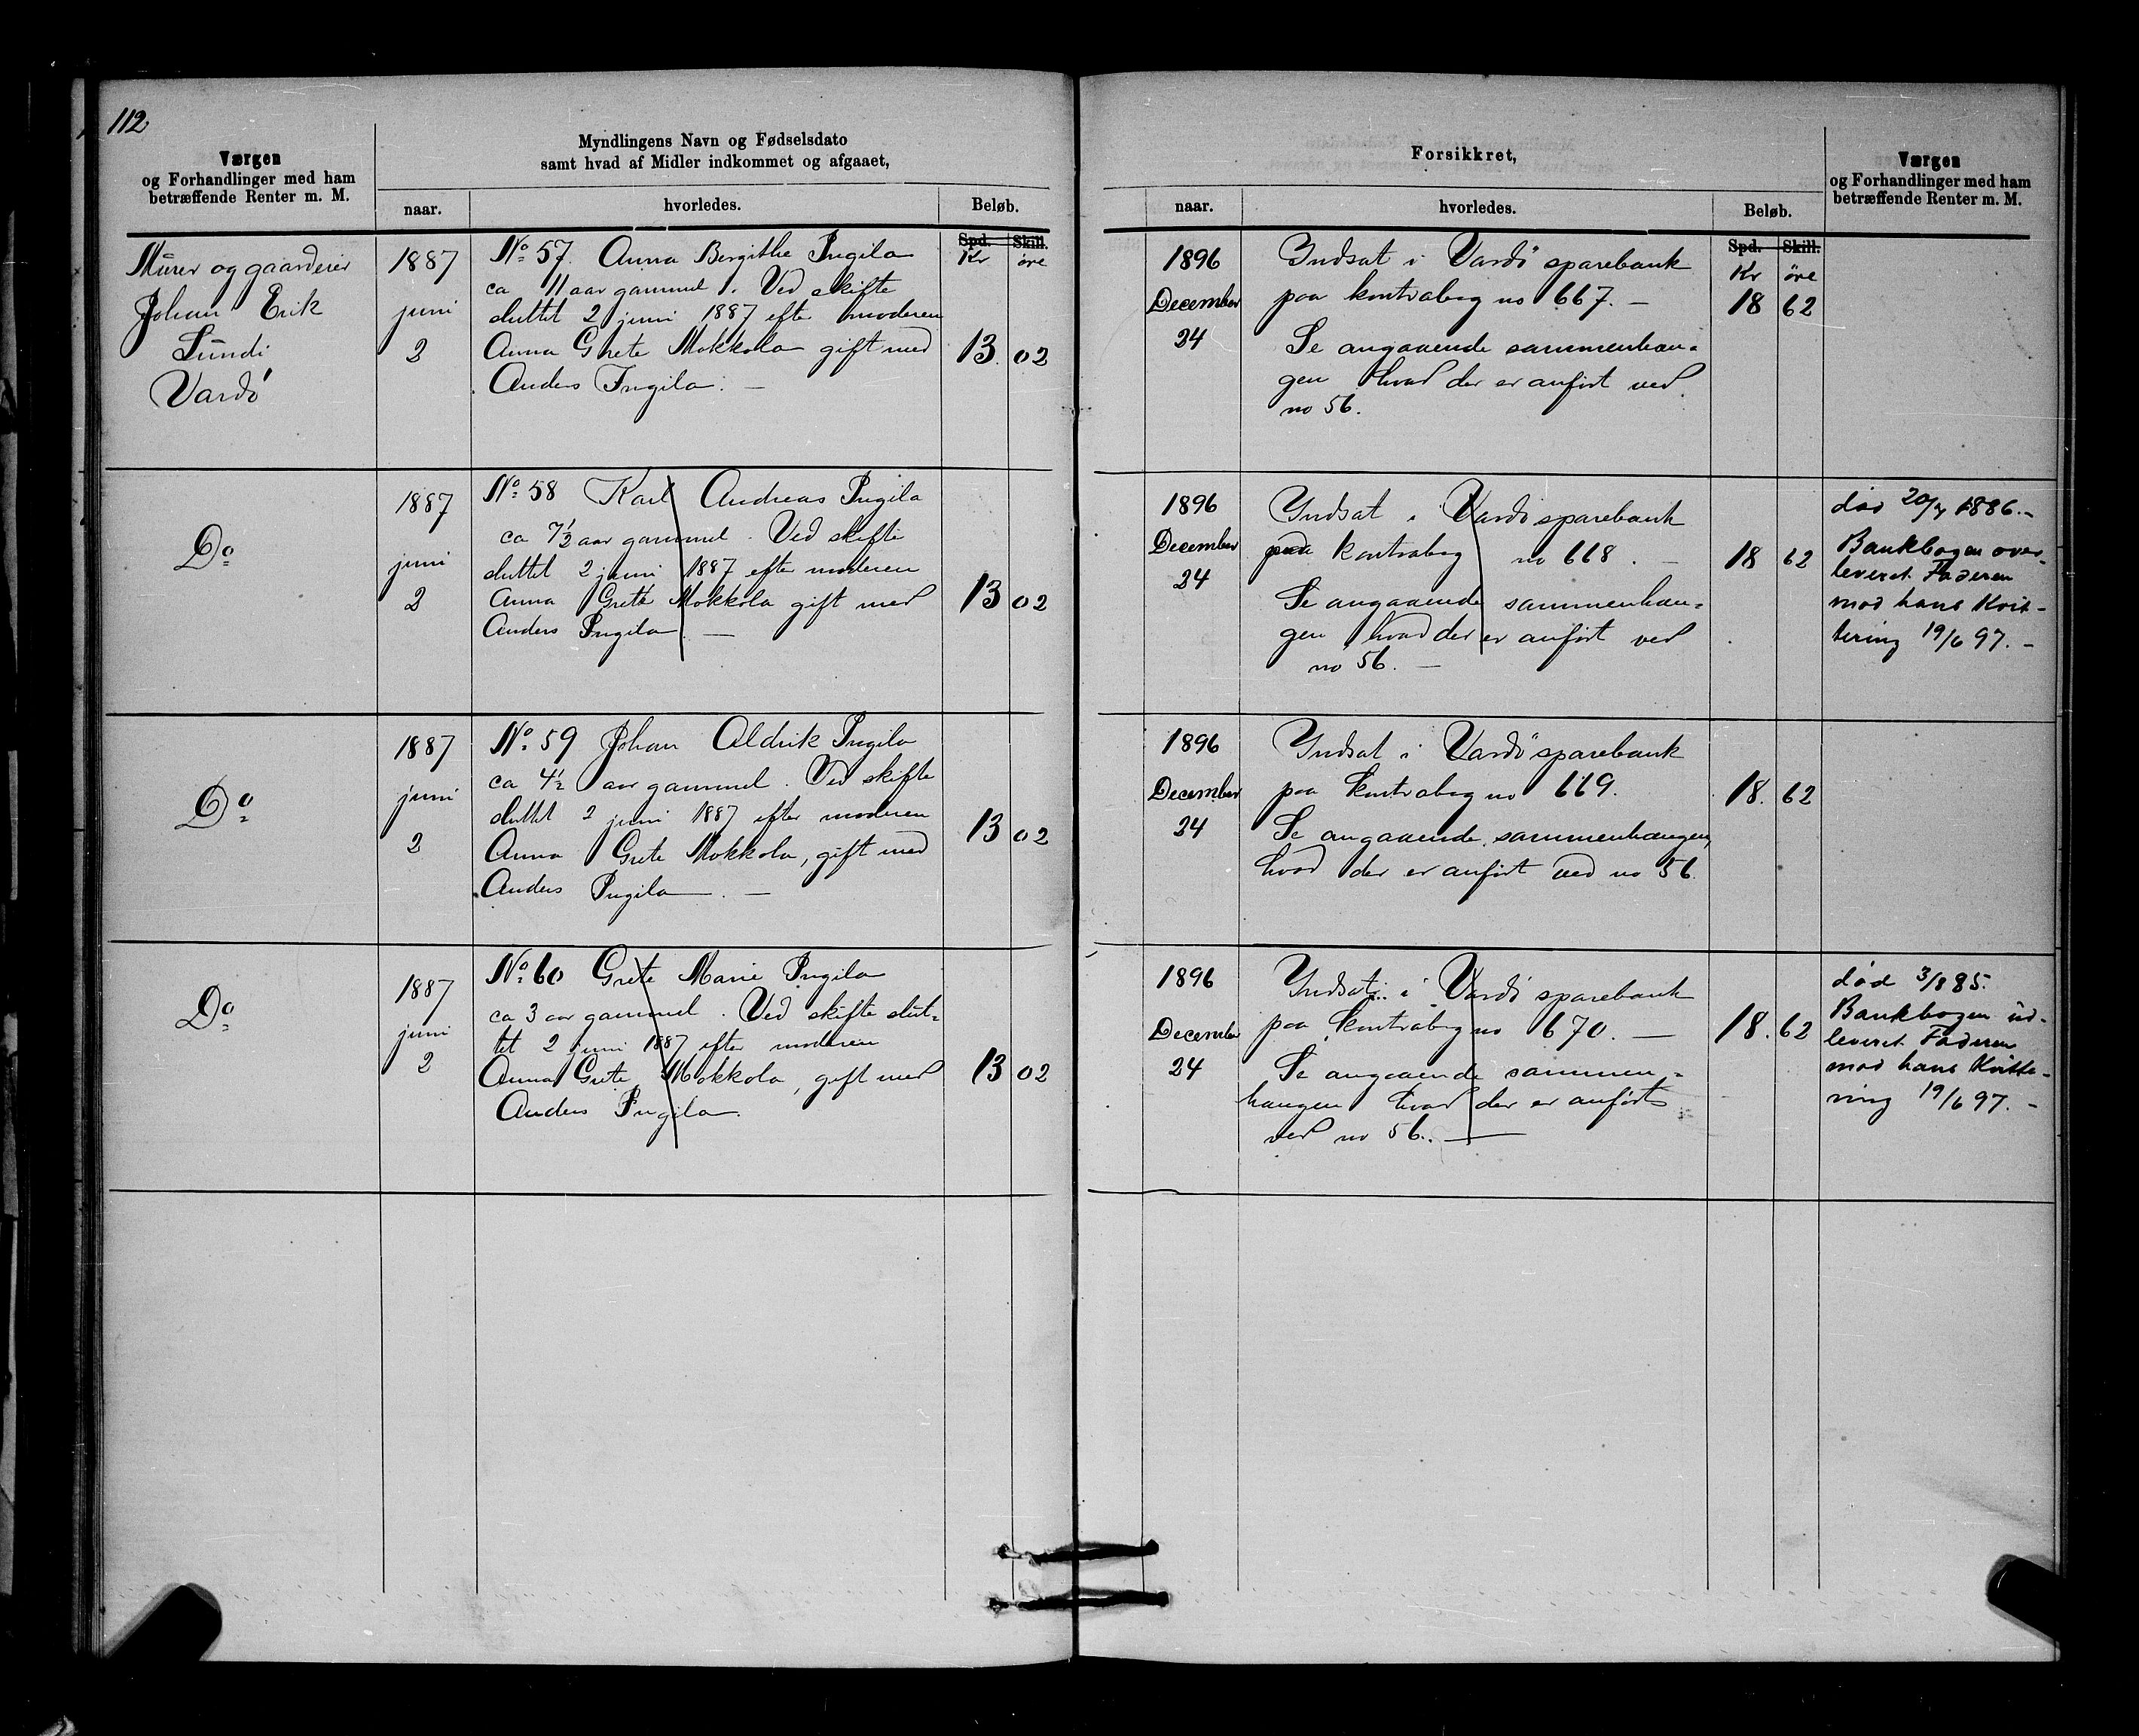 112
Værgen
og Forhandlinger med ham
betræffende Renter m. M.
Myndlingens Navn og Fødselsdato
samt hvad af Midler indkommet og afgaaet,
naar.
hvorledes.
Beløb.
Spd. Skill.
Kr øre
Murer og gaardeier
Johan Erik
Sundi
Vardö
1887
juni
2
No 57. Anna Bergithe Ingila
ca 11 aar gammel. Ved skifte
sluttet 2 juni 1887 efter moderen
Anna Grete Mokkola gift med
Anders Ingila. —
13. 02
Do
1887
juni
2
No 58 Karl Andreas Ingila
ca 7½ aar gammel. Ved skifte
sluttet 2 juni 1887 efter moderen
Anna Grete Mokkola gift med
Anders Ingila. —
13 02
Do
1887
juni
2
No 59 Johan Aldrik Ingila
ca 4½ aar gammel. Ved skifte
sluttet 2 juni 1887 efter moderen
Anna Grete Mokkola, gift med
Anders Ingila. —
13 02
Do
1887
juni
2
No 60 Grete Marie Ingila
ca 3 aar gammel. Ved skifte slut-
tet 2 juni 1887 efter moderen
Anna Grete Mokkola, gift med
Anders Ingila.
13 02
Forsikkret,
naar.
hvorledes.
Beløb.
Værgen
og Forhandlinger med ham
betræffende Renter m. M.
Spd. Skill.
Kr øre
1896
December
24
Indsat i Vardö sparebank
paa kontrabog no 667. —
Se angaaende sammenhæn-
gen hvad der er anført ved
no 56.
18 62
1896
December
24
Indsat i Vardö sparebank
paa kontrabog no 668. —
Se angaaende sammenhæn-
gen hvad der er anført ved
no 56. —
18 62
død 20/7 1886. -
Bankbogen over-
leveret Faderen
mod hans Kvit-
tering 19/6 97. -
1896
December
24
Indsat i Vardö sparebank
paa kontrabog no 669.
Se angaaende sammenhængen,
hvad der er anført ved no 56.
18. 62
1896
December
24
Indsat i Vardö sparebank
paa kontrabog no 670. —
Se angaaende sammen-
hængen hvad der er anført
ved no 56. —
18. 62
død 3/8 85.
Bankbogen ud-
leveret Faderen
mod hans Kvitte-
ring 19/6 97. -